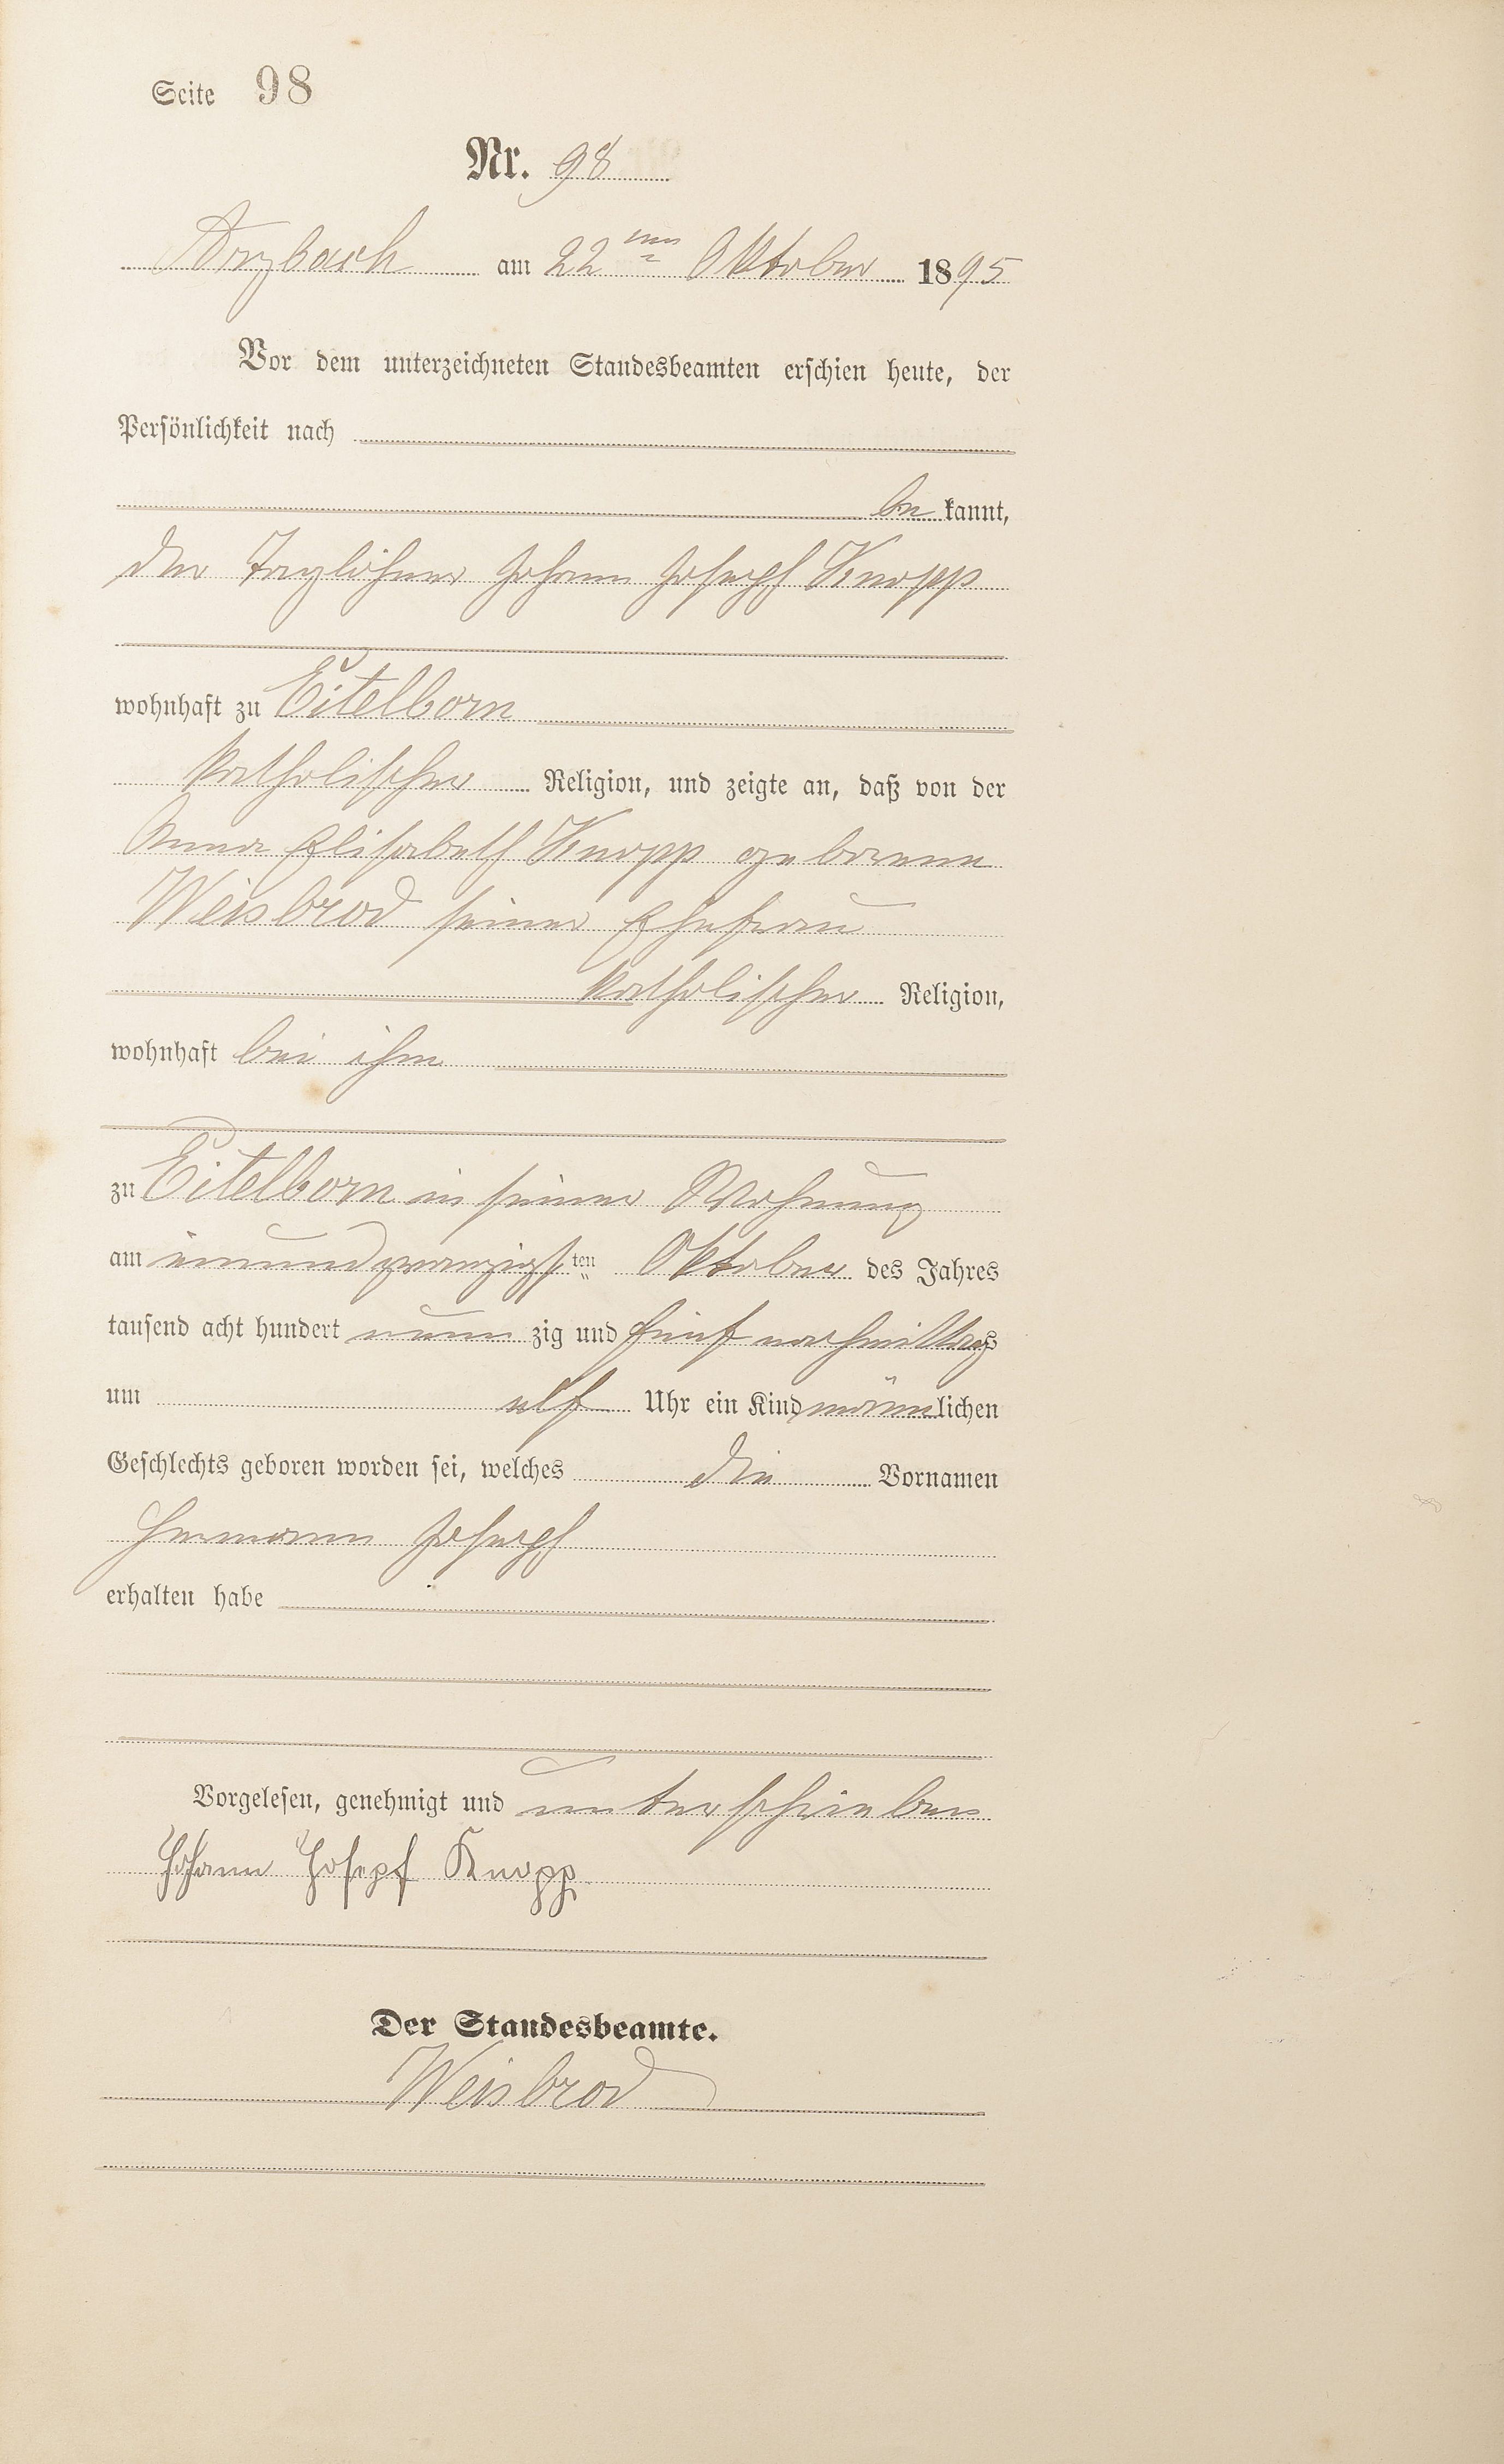 Seite 98
Nr. 98
Arzbach am 22ten Oktober 1895
Vor dem unterzeichneten Standesbeamten erschien heute, der
Persönlichkeit nach
be kannt,
der Taglöhner Johann Joseph Knopp
wohnhaft zu Eitelborn
katholischer Religion, und zeigte an, daß von der
Anna Elisabeth Knopp geborene
Weisbrod seiner Ehefrau
katholischer Religion,
wohnhaft bei ihm
zu Eitelborn in seiner Wohnung
am einundzwanzigsten Oktober des Jahres
tausend acht hundert neun zig und fünf nachmittags
um elf Uhr ein Kind männlichen
Geschlechts geboren worden sei, welches die Vornamen
Hermann Joseph
erhalten habe
Vorgelesen, genehmigt und unterschrieben
Johann Josepf Knopp
Der Standesbeamte.
Weisbrod